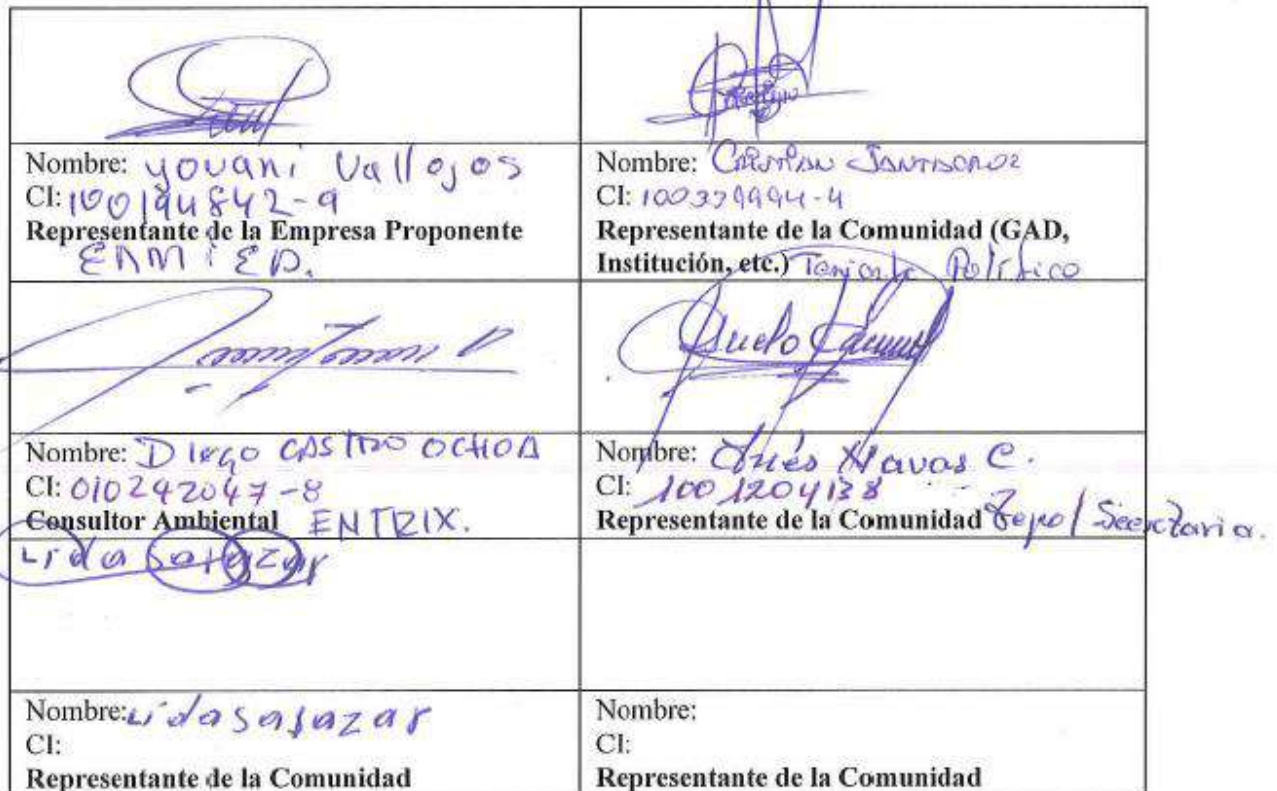 Nombre: Yovani Vallejos
CI: 100194842-9
Representante de la Empresa Proponente
ENMIED.
Nombre: Cristian Santacruz
CI: 100339994-4
Representante de la Comunidad (GAD,
Institución, etc.) Teniente Político
Nombre: Diego CASTRO OCHOA
CI: 010242047-8
Consultor Ambiental ENTRIX.
Nombre: Inés Navas C.
CI: 1001204138
Representante de la Comunidad Secretaria.
Lida Salazar
Nombre: Lida Salazar
CI:
Representante de la Comunidad
Nombre:
CI:
Representante de la Comunidad